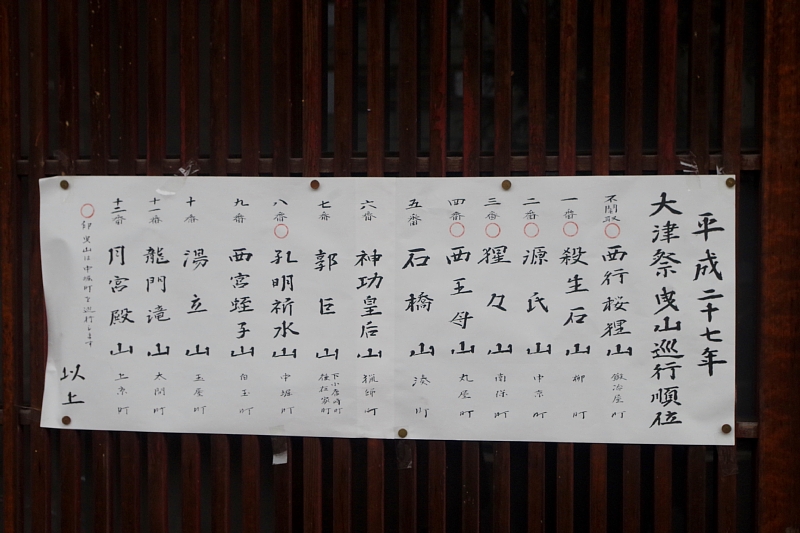 平成二十七年
大津祭曳山巡行順位
不鬮取 ○ 西行桜狸山 鍛冶屋町
一番 ○ 殺生石山 柳町
二番 ○ 源氏山 中京町
三番 ○ 猩々山 南保町
四番 ○ 西王母山 丸屋町
五番 石橋山 湊町
六番 神功皇后山 猟師町
七番 郭巨山 下小唐崎町
後在家町
八番 ○ 孔明祈水山 中堀町
九番 西宮蛭子山 白玉町
十番 湯立山 玉屋町
十一番 龍門滝山 太間町
十二番 月宮殿山 上京町
○印曳山は中堀町を巡行します
以上